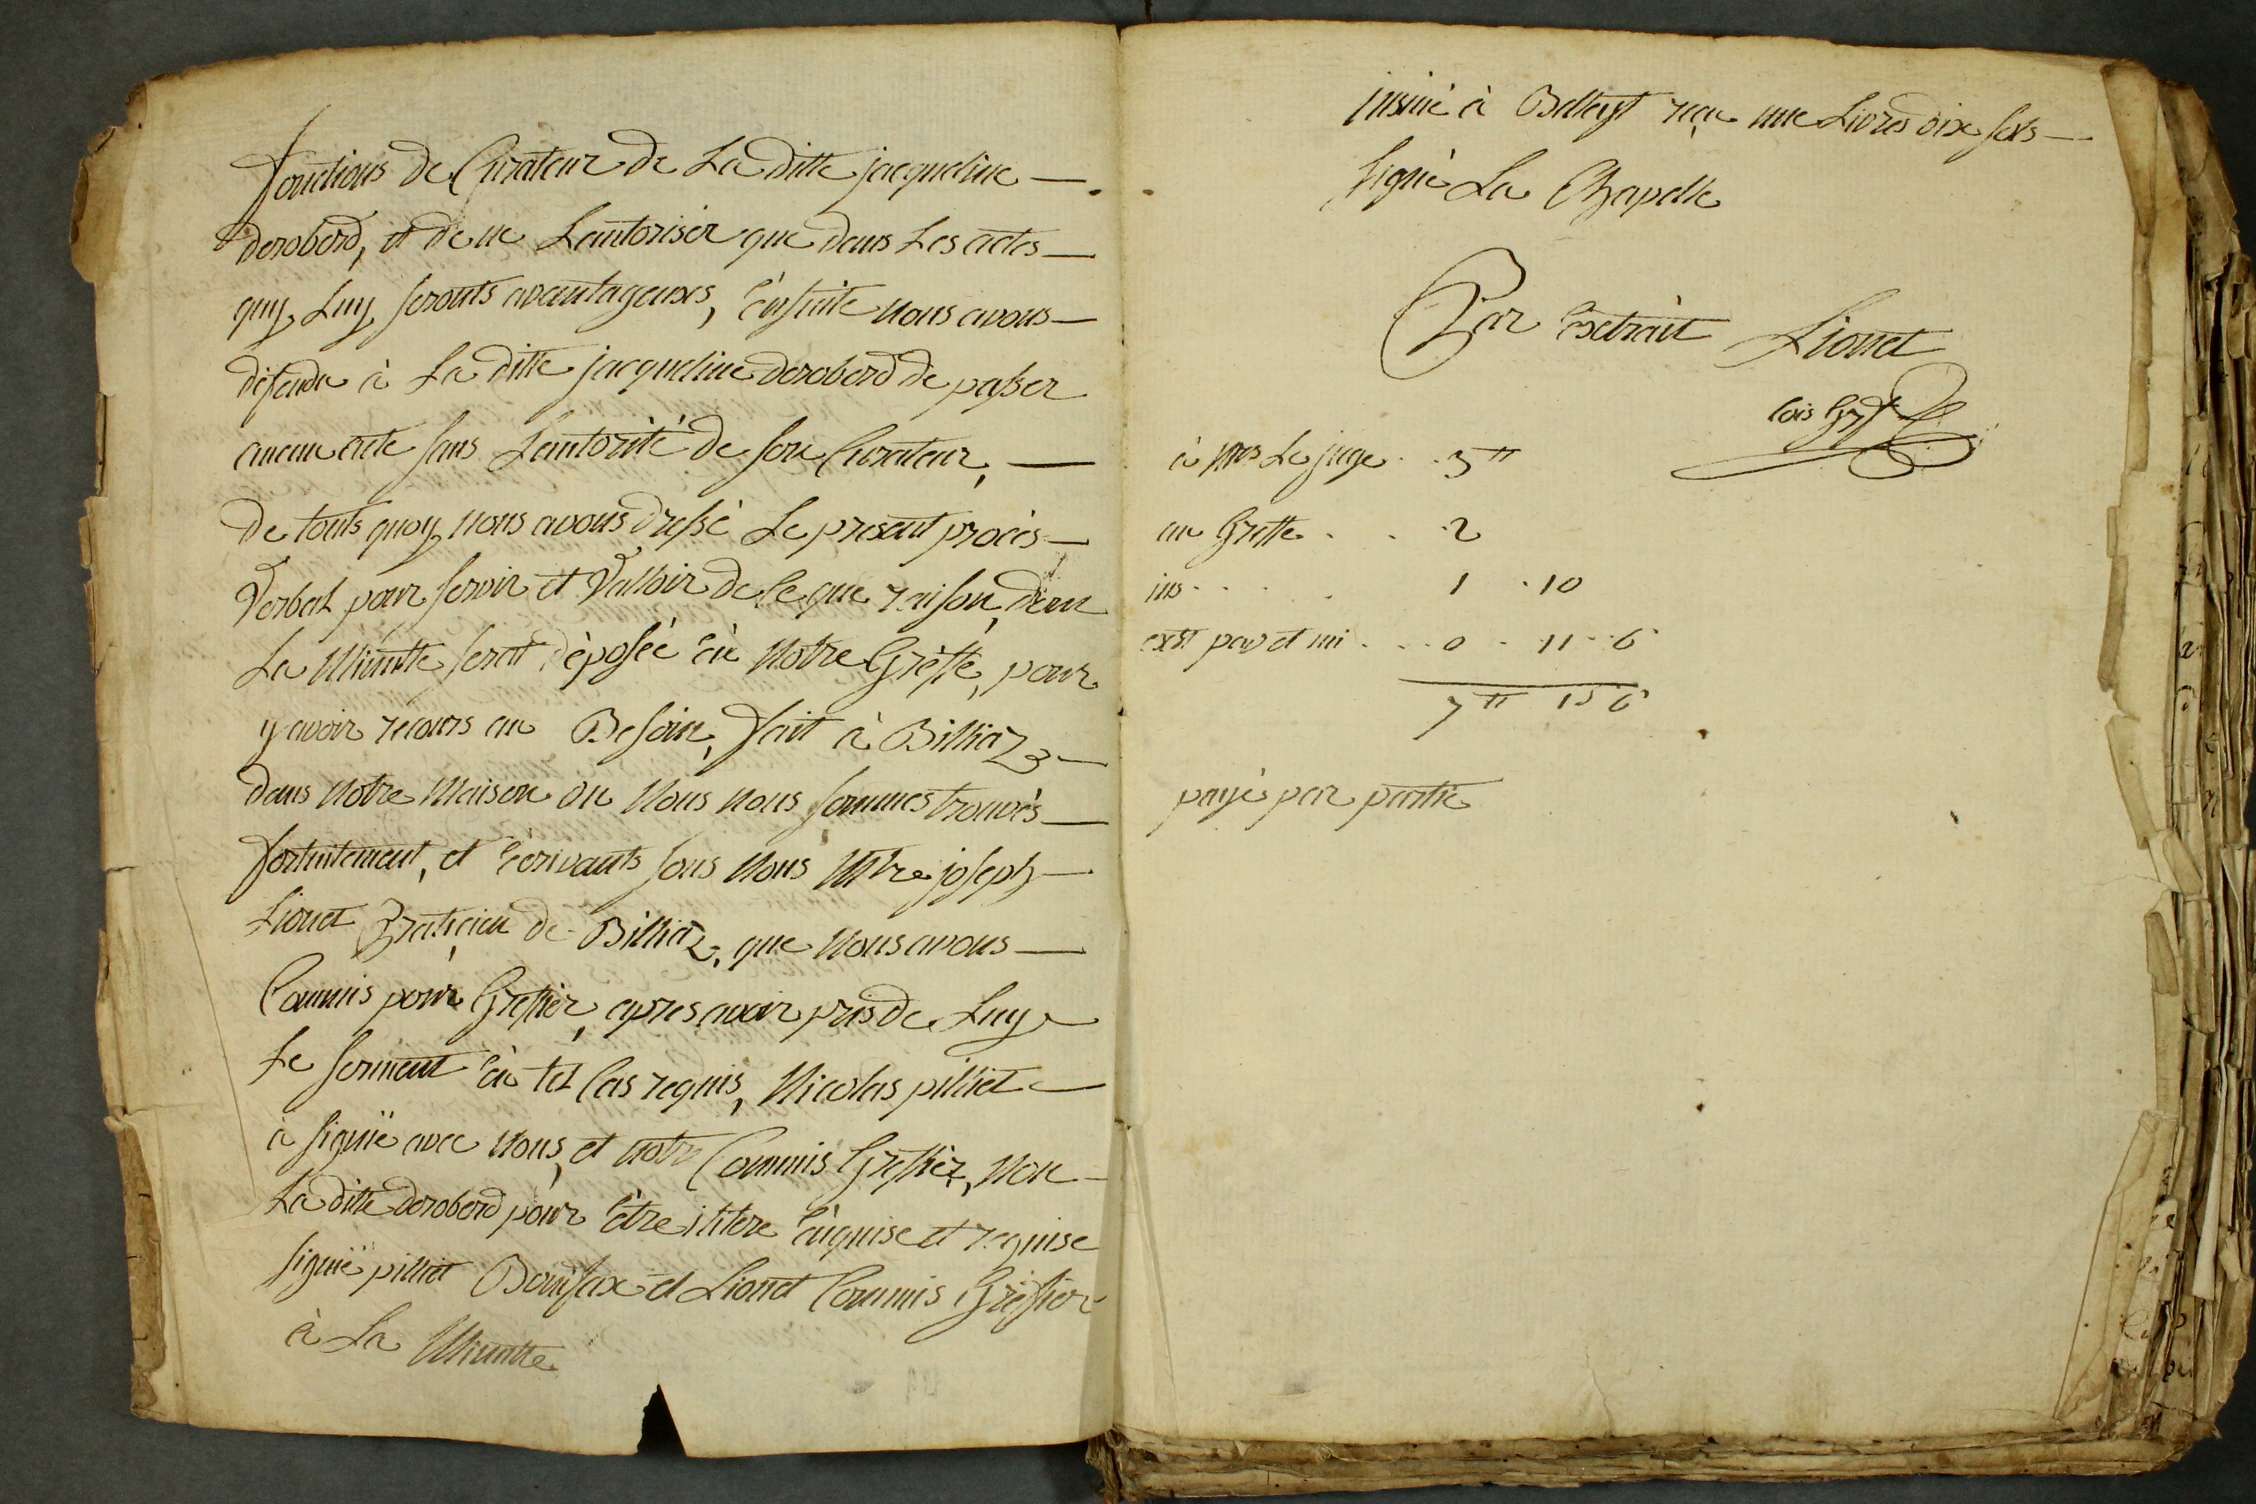 fonctions de Curateur de La ditte jacqueline —
deroberd, et de ne Lautoriser que dans Les actes —
quy Luy seronts avantageuxs, ensuite nous avons —
défendu à La ditte jacqueline deroberd de passer
aucun acte sans Lautorité de son Curateur, —
de touts quoy nous avons dressé Le present procès —
Verbal pour servir et Valloir de Ce que raison, dont
La Minutte serat déposée en Notre Grèffe, pour
y avoir recours au Besoin, fait à Billiaz —
dans Notre Maison ou Nous nous sommes trouvés —
fortuitement, et écrivants sous Nous Mtre joseph —
Lionet Praticien de Billiaz, que Nous avons —
Commis pour Greffier, apres avoir pris de Luy
Le serment en tel Cas requis, Nicolas pilliet —
à signé avec Nous, et notre Commis Greffier, Non —
La ditte deroberd pour être illitere enquise et requise
signé pilliet Bonifax et Lionet Commis Greffier
à La Minutte
insiné à Belley reçu une Livres dix sols —
signé La Chapelle
Par Extrait Lionet
Cois Gref
à Mrs Le juge . . 3 tt
au Greffe . . . 2
ins . . . . 1 . 10
extt pap et mi . . . 0 . 11 . 6
7 tt 1 s 6
payé par partie